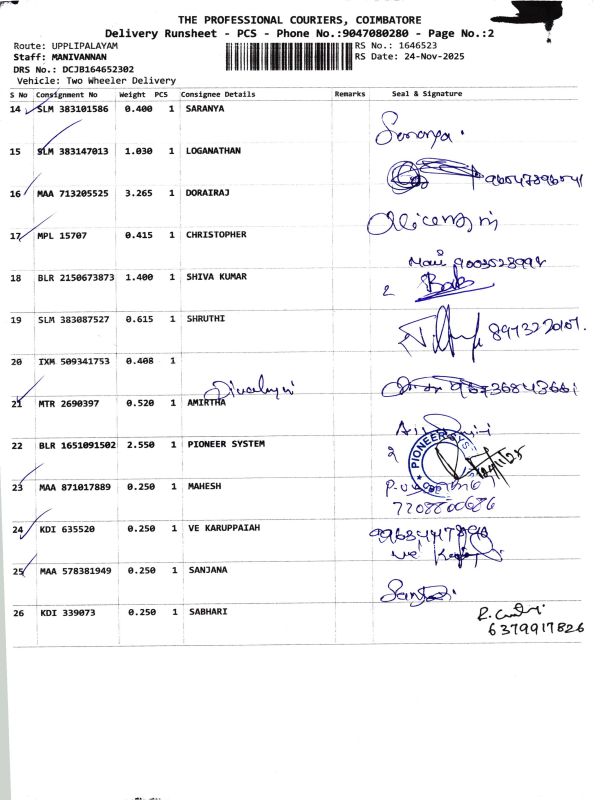 THE PROFESSIONAL COURIERS, COIMBATORE
Delivery Runsheet - PCS - Phone No.:9047080280 - Page No.:2
Route: UPPLIPALAYAM RS No.: 1646523
Staff: MANIVANNAN RS Date: 24-Nov-2025
DRS No.: DCJB164652302
Vehicle: Two Wheeler Delivery
S No Consignment No Weight PCS Consignee Details Remarks Seal & Signature
14 SLM 383101586 0.400 1 SARANYA
Saranya.
15 SLM 383147013 1.030 1 LOGANATHAN
16 MAA 713205525 3.265 1 DORAIRAJ
17 MPL 15707 0.415 1 CHRISTOPHER
18 BLR 2150673873 1.400 1 SHIVA KUMAR
19 SLM 383087527 0.615 1 SHRUTHI
8973220107.
20 IXM 509341753 0.408 1
21 MTR 2690397 0.520 1 AMIRTHA
22 BLR 1651091502 2.550 1 PIONEER SYSTEM
PIONEER SYS
23 MAA 871017889 0.250 1 MAHESH
7708800686
24 KDI 635520 0.250 1 VE KARUPPAIAH
25 MAA 578381949 0.250 1 SANJANA
26 KDI 339073 0.250 1 SABHARI
6379917826